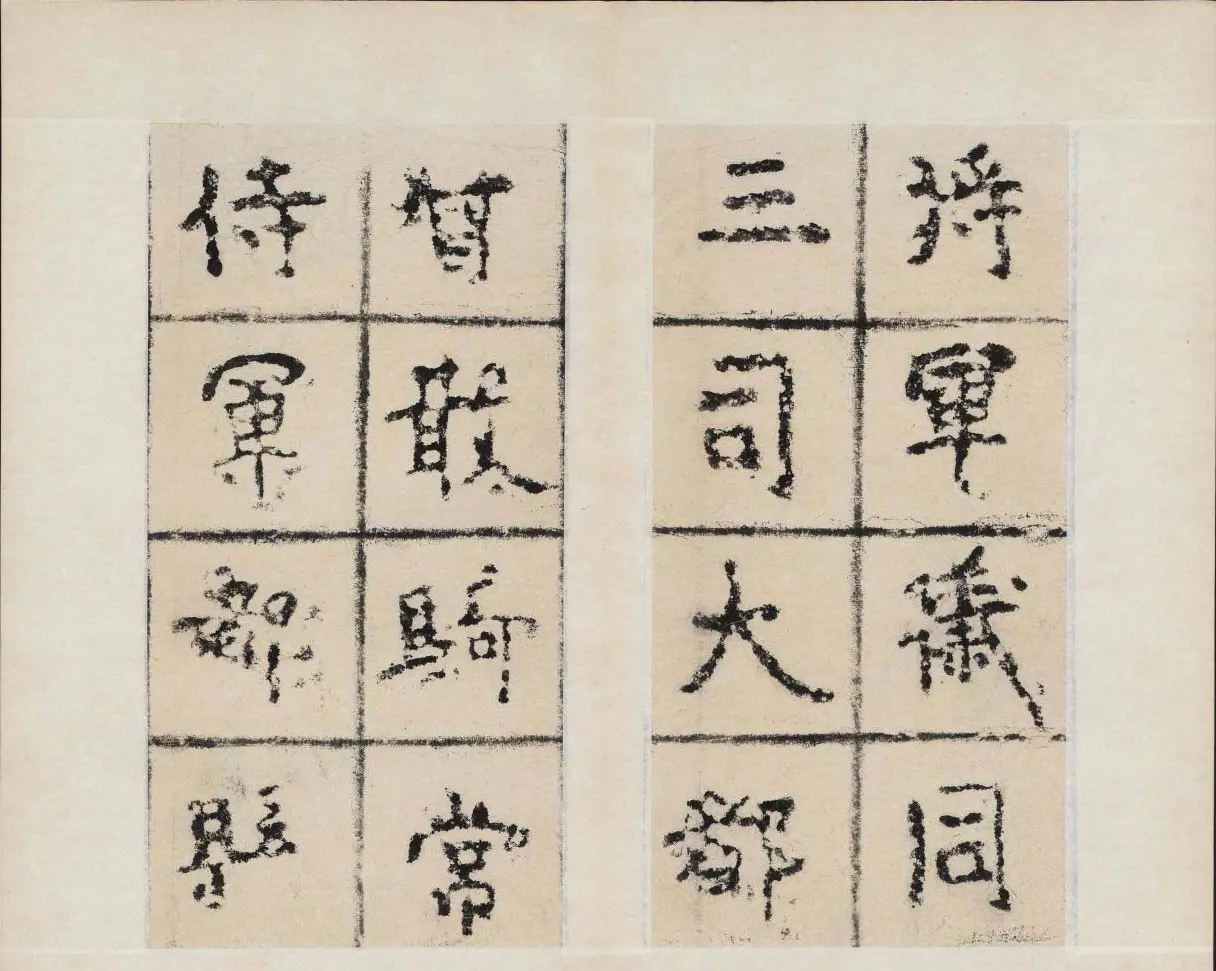 將軍儀同
三司大都
督散騎常
侍軍都縣